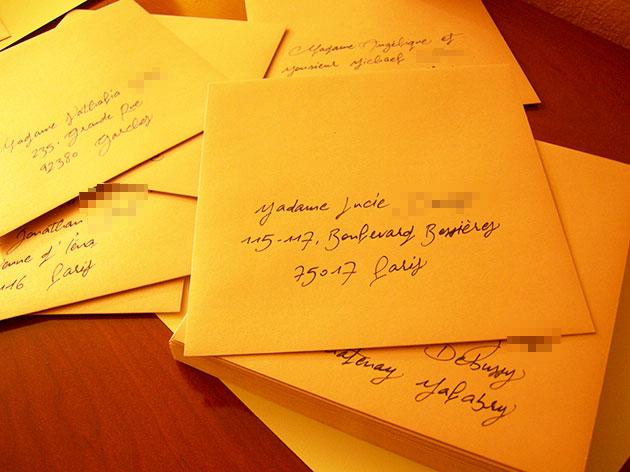 Madame Angélique et
Monsieur Michael
Madame Nathalia
235. Grande Rue
92380 Garches
Jonathan
d'Iéna
116 Paris
Madame Lucie
115-117, Boulevard Bessières
75017 Paris
Debussy
Malabry